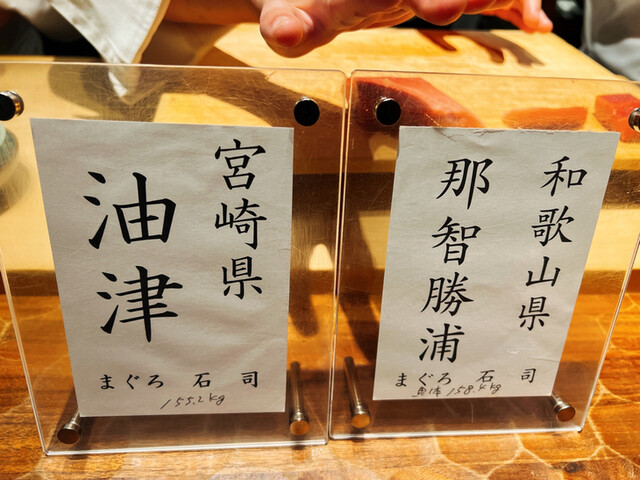 宮崎県
油津
まぐろ 石司
155.2kg
和歌山県
那智勝浦
まぐろ 石司
魚体 158.4kg